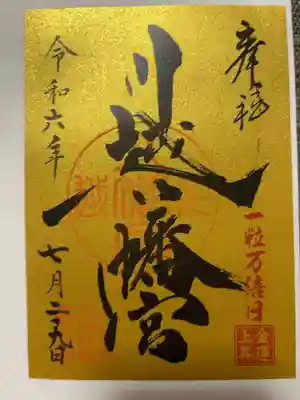 奉拝
一粒万倍日
金運
上昇
川越八幡宮
令和六年
七月二九日